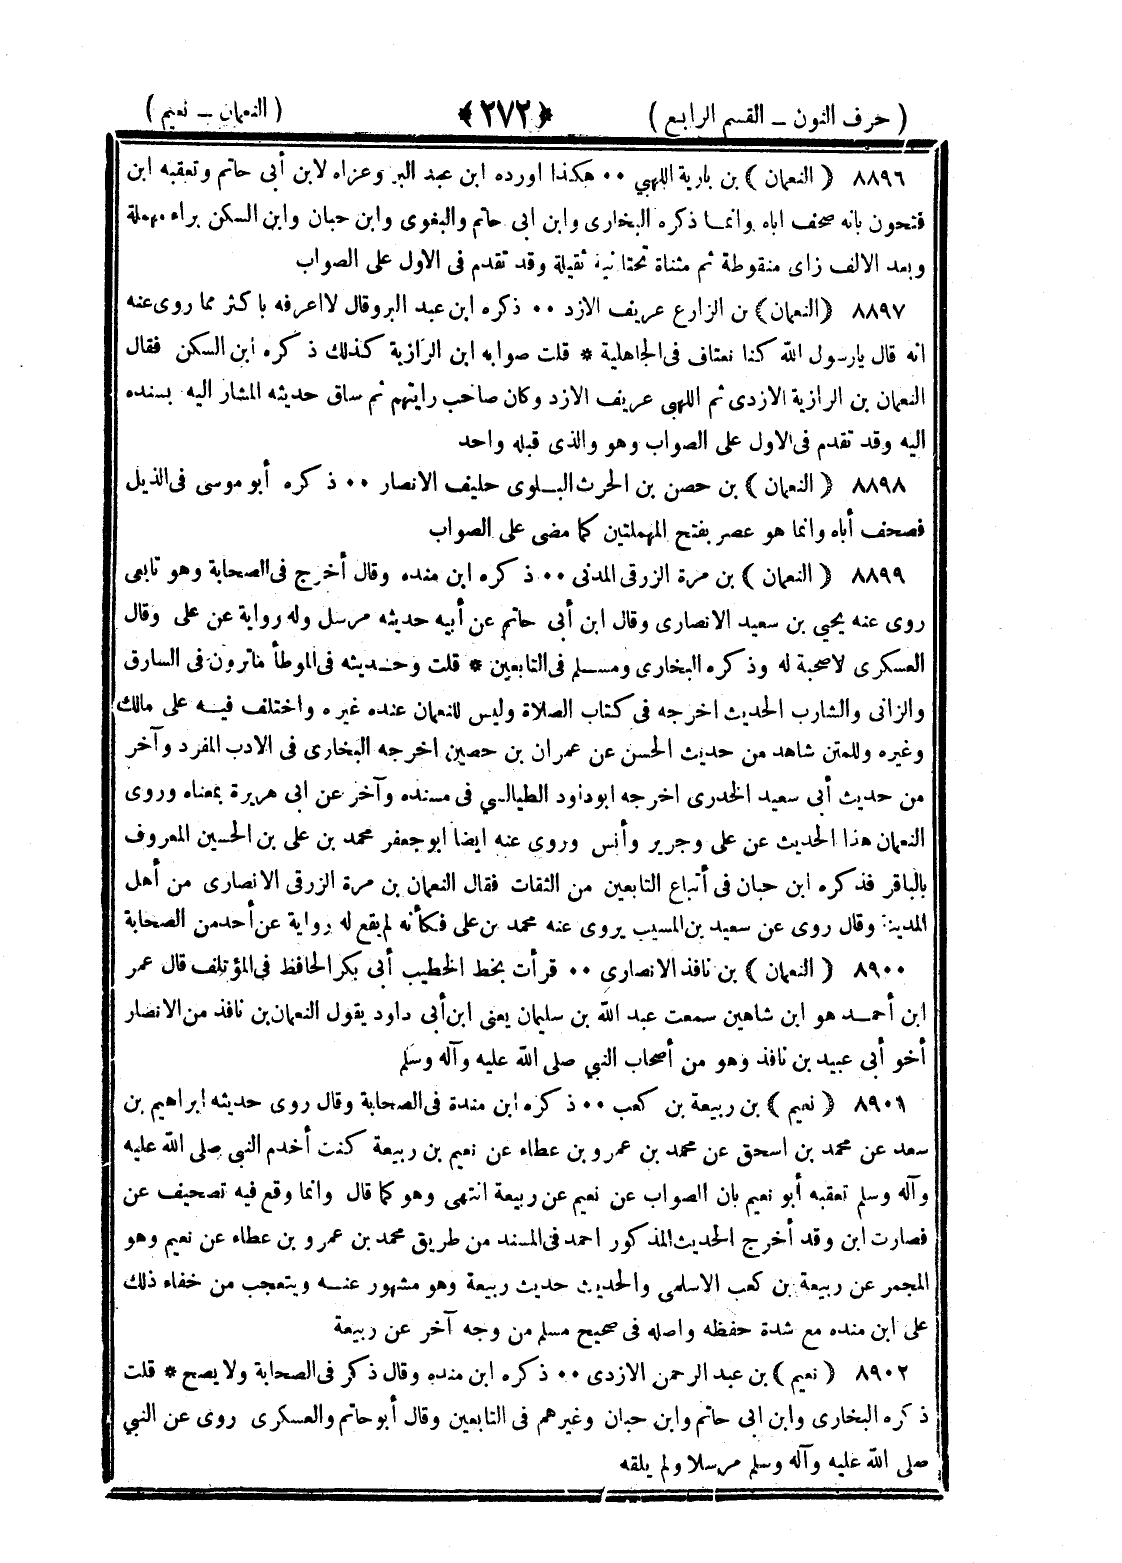 ( حرف النون ــ القسم الرابع ) ﴿٢٧٢﴾ ( النعمان ــ نعيم )
٨٨٩٦ ( النعمان ) بن بارية اللهبي ٠٠ هكذا اورده ابن عبد البر وعزاه لابن أبى حاتم وتعقبه ابن
فتحون بانه صحف اباه وانما ذكره البخارى وابن ابى حاتم والبغوى وابن حبان وابن السكن براء مهملة
وبعد الالف زاى منقوطة ثم مثناة تحتانية ثقيلة وقد تقدم فى الاول على الصواب
٨٨٩٧ (النعمان) بن الزارع عريف الازد ٠٠ ذكره ابن عبد البر وقال لا اعرفه باكثر مما روى عنه
انه قال يارسول الله كنا نعتاف فى الجاهلية * قلت صوابه ابن الرازية كذلك ذكره ابن السكن فقال
النعمان بن الرازية الازدى ثم اللهبى عريف الازد وكان صاحب رايتهم ثم ساق حديثه المشار اليه بسنده
اليه وقد تقدم فى الاول على الصواب وهو والذى قبله واحد
٨٨٩٨ ( النعمان ) بن حصن بن الحرث البلوى حليف الانصار ٠٠ ذكره أبو موسى فى الذيل
فصحف أباه وانما هو عصر بفتح المهملتين كما مضى على الصواب
٨٨٩٩ ( النعمان ) بن مرة الزرقى المدنى ٠٠ ذكره ابن منده وقال أخرج فى الصحابة وهو تابعى
روى عنه يحيى بن سعيد الانصارى وقال ابن أبى حاتم عن أبيه حديثه مرسل وله رواية عن على وقال
العسكرى لاصحبة له وذكره البخارى ومسلم فى التابعين * قلت وحديثه فى الموطأ ماترون فى السارق
والزانى والشارب الحديث اخرجه فى كتاب الصلاة وليس للنعمان عنده غيره واختلف فيه على مالك
وغيره وللمتن شاهد من حديث الحسن عن عمران بن حصين اخرجه البخارى فى الادب المفرد وآخر
من حديث أبى سعيد الخدرى اخرجه ابوداود الطيالسي فى مسنده وآخر عن ابى هريرة بمعناه وروى
النعمان هذا الحديث عن على وجرير وأنس وروى عنه ايضا ابوجعفر محمد بن على بن الحسين المعروف
بالباقر فذكره ابن حبان فى أتباع التابعين من الثقات فقال النعمان بن مرة الزرقى الانصارى من أهل
المدينة وقال روى عن سعيد بن المسيب يروى عنه محمد بن على فكأنه لم يقع له رواية عن أحد من الصحابة
٨٩٠٠ ( النعمان ) بن نافذ الانصارى ٠٠ قرأت بخط الخطيب أبى بكر الحافظ فى المؤتلف قال عمر
ابن أحمد هو ابن شاهين سمعت عبد الله بن سليمان يعنى ابن أبى داود يقول النعمان بن نافذ من الانصار
أخو أبى عبيد بن نافذ وهو من أصحاب النبي صلى الله عليه وآله وسلم
٨٩٠١ ( نعيم ) بن ربيعة بن كعب ٠٠ ذكره ابن مندة فى الصحابة وقال روى حديثه ابراهيم بن
سعد عن محمد بن اسحق عن محمد بن عمرو بن عطاء عن نعيم بن ربيعة كنت أخدم النبى صلى الله عليه
وآله وسلم تعقبه أبو نعيم بان الصواب عن نعيم عن ربيعة انتهى وهو كما قال وانما وقع فيه تصحيف عن
فصارت ابن وقد أخرج الحديث المذكور احمد فى المسند من طريق محمد بن عمرو بن عطاء عن نعيم وهو
المجمر عن ربيعة بن كعب الاسلمى والحديث حديث ربيعة وهو مشهور عنه ويتعجب من خفاء ذلك
على ابن منده مع شدة حفظه واصله فى صحيح مسلم من وجه آخر عن ربيعة
٨٩٠٢ ( نعيم ) بن عبد الرحمن الازدى ٠٠ ذكره ابن منده وقال ذكر فى الصحابة ولا يصح * قلت
ذكره البخارى وابن ابى حاتم وابن حبان وغيرهم فى التابعين وقال أبو حاتم والعسكرى روى عن النبي
صلى الله عليه وآله وسلم مرسلا ولم يلقه